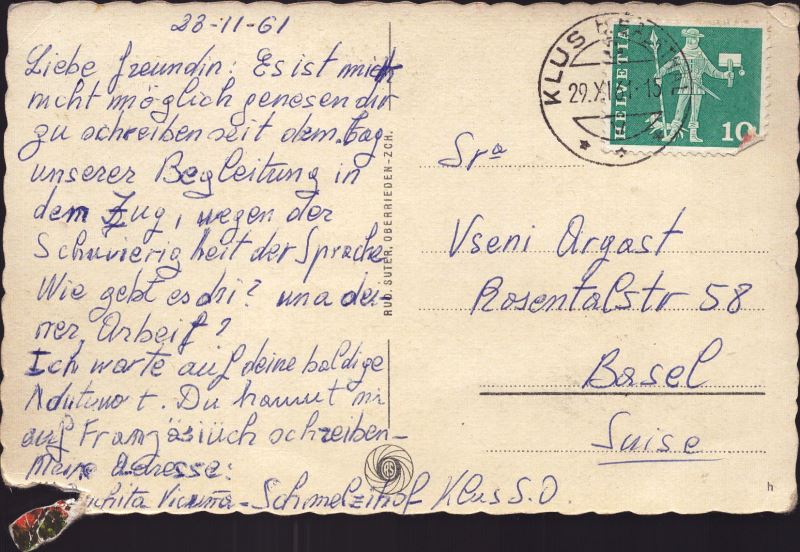 23-11-61
Liebe freundin: Es ist mich
nicht möglich genesen dir
zu schreiben seit dem tag
unserer Begleitung in
dem Zug, wegen der
Schwierigkeit der Sprache.
Wie geht es dri? und dei-
ner Arbeit?
Ich warte auf deine baldige
Du
auf Französiüch schreiben-
Adresse:
Vicuña - Schmelzihof Klus S.O.
RUD. SUTER, OBERRIEDEN-ZCH.
KLUS
29.XI.61-15
HELVETIA
10
Sra
Vseni Argast
Rosentalstr 58
Basel
Suise
RS
h